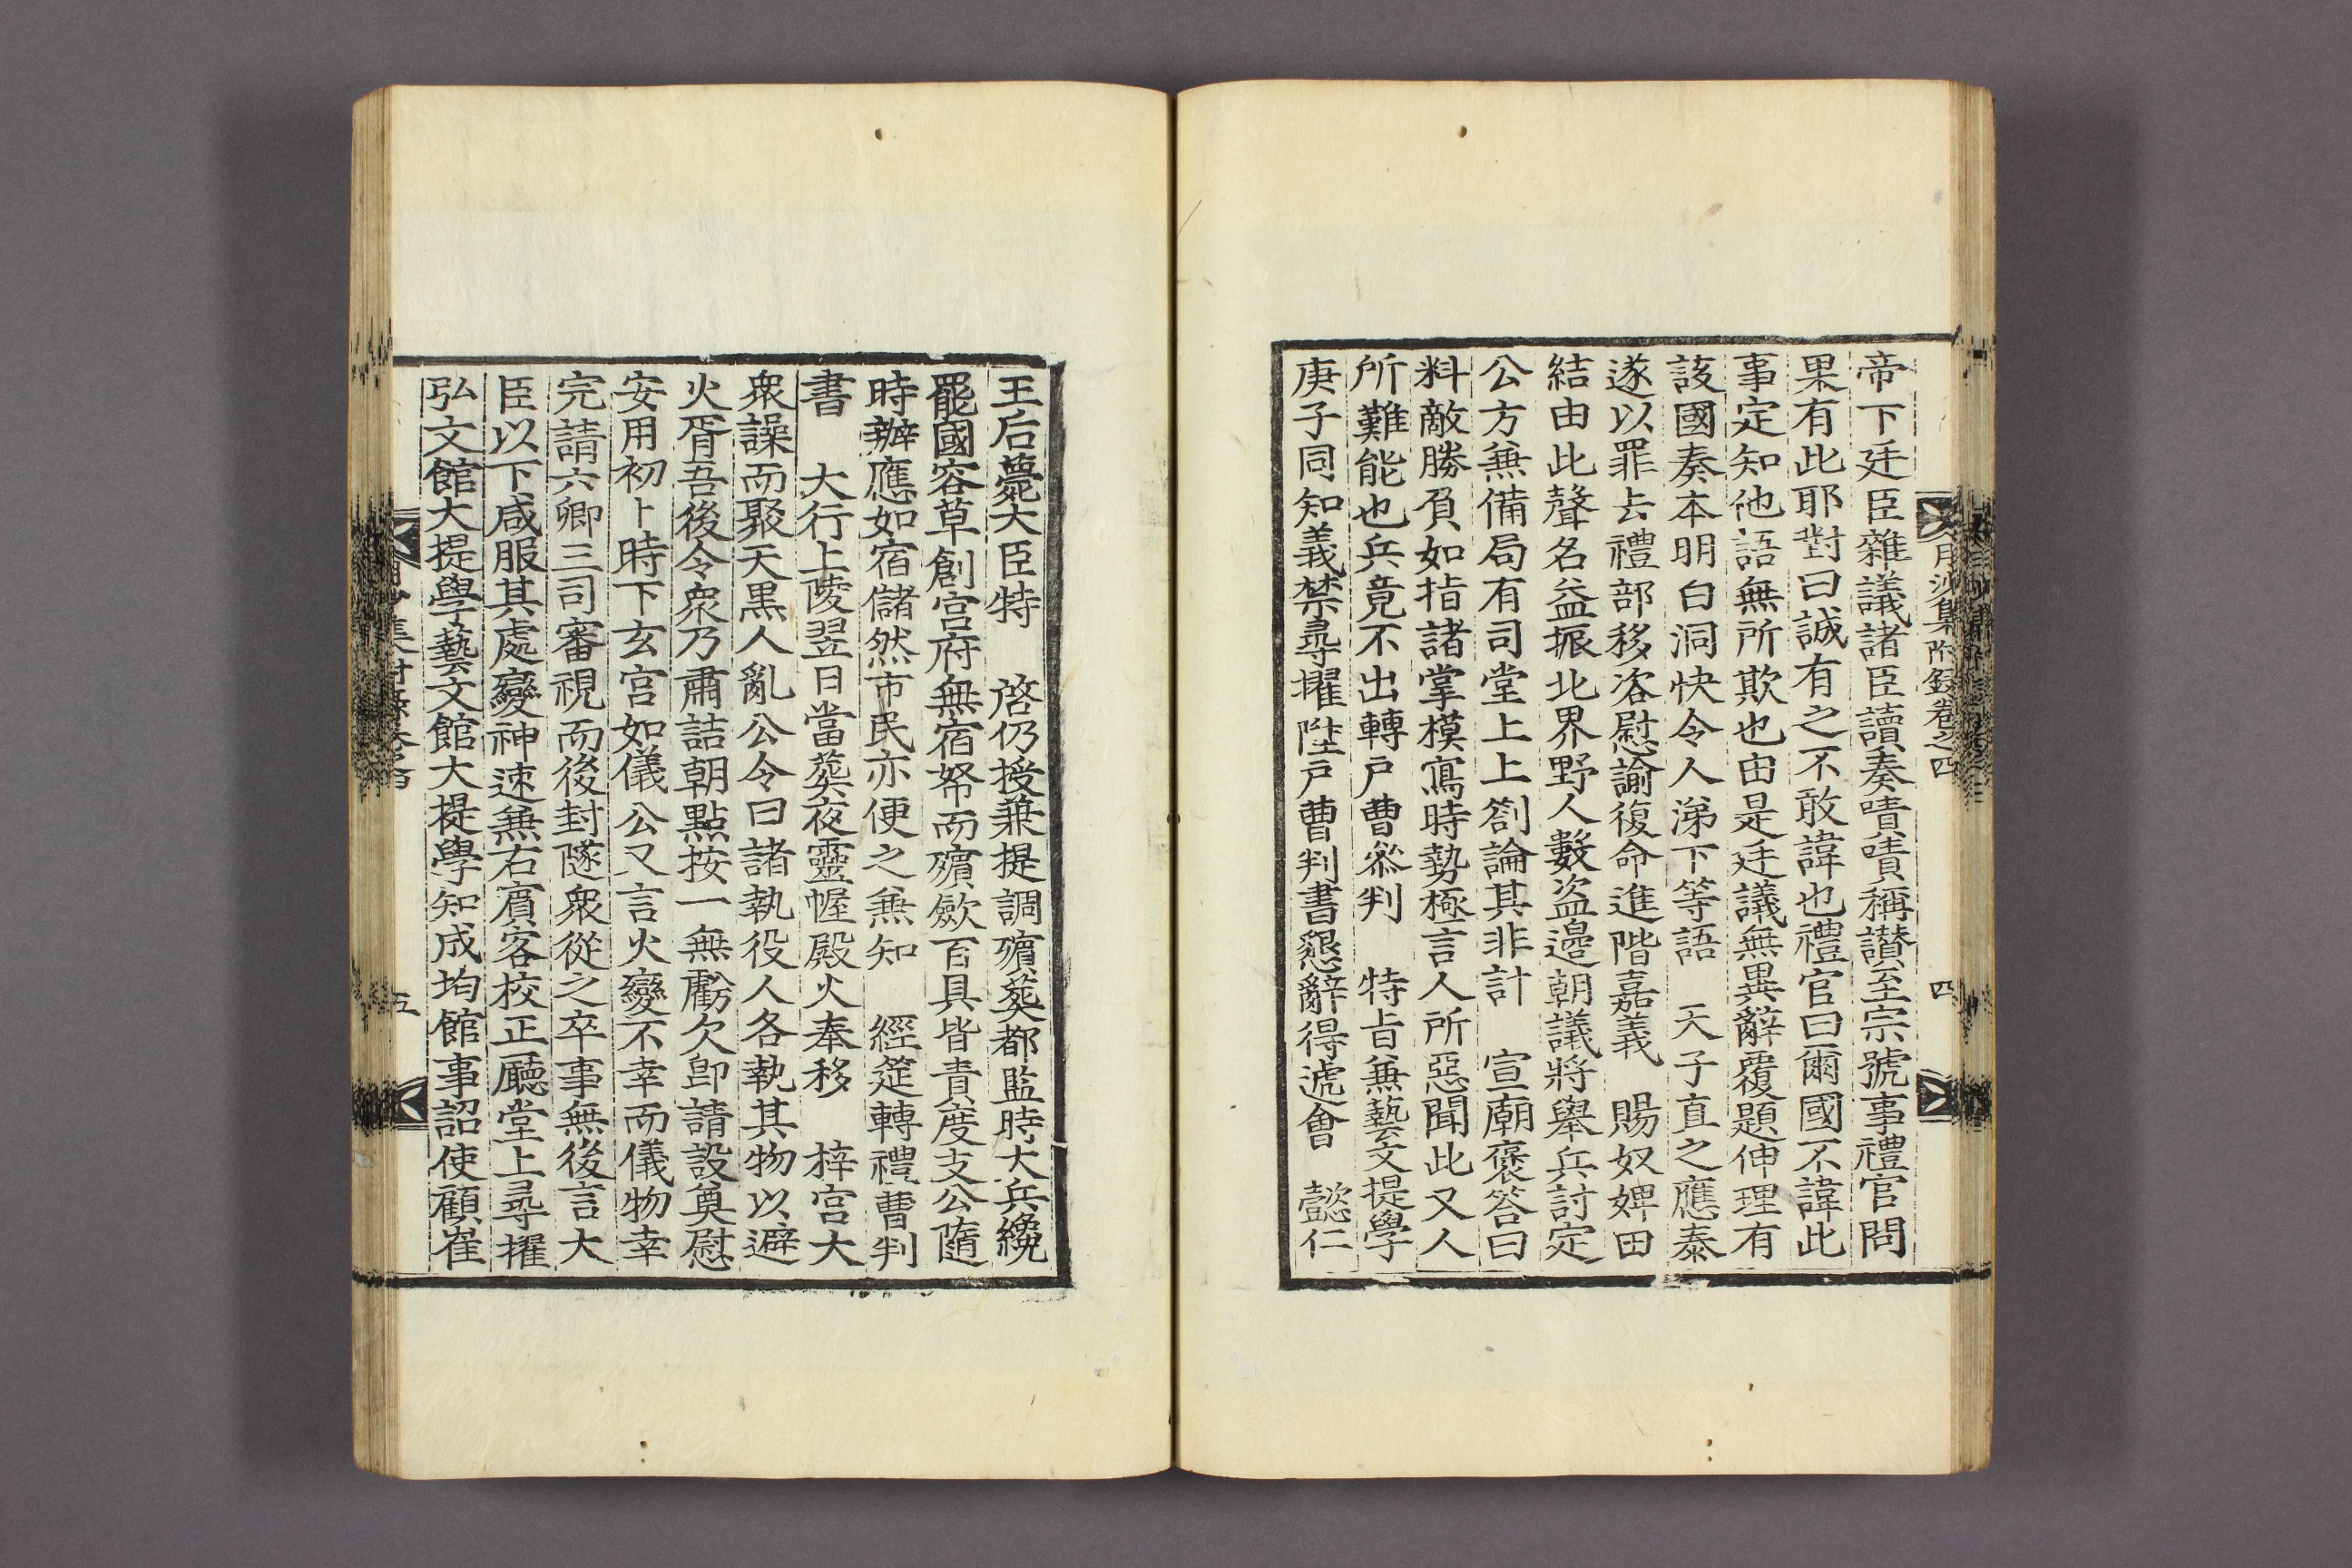 月沙集附錄卷之四
四
帝下廷臣雜議諸臣讀奏嘖嘖稱讃至宗號事禮官問
果有此耶對曰誠有之不敢諱也禮官曰爾國不諱此
事定知他語無所欺也由是廷議無異辭覆題伸理有
該國奏本明白洞快令人涕下等語　天子直之應泰
遂以罪去禮部移咨慰諭復命進階嘉義　賜奴婢田
結由此聲名益振北界野人數盜邊朝議將舉兵討定
公方兼備局有司堂上上劄論其非計　宣廟褒答曰
料敵勝負如指諸掌模寫時勢極言人所惡聞此又人
所難能也兵竟不出轉戶曹叅判　特旨兼藝文提學
庚子同知義禁尋擢陞戶曹判書懇辭得遞會　懿仁
王后薨大臣特　啓仍授兼提調殯葬都監時大兵纔
罷國容草創宮府無宿帑而殯歛百具皆責度支公隨
時辦應如宿儲然市民亦便之兼知　經筵轉禮曹判
書　大行上陵翌日當葬夜靈幄殿火奉移　梓宮大
衆譟而聚天黑人亂公令曰諸執役人各執其物以避
火胥吾後令衆乃肅詰朝點按一無虧欠卽請設奠慰
安用初卜時下玄宮如儀公又言火變不幸而儀物幸
完請六卿三司審視而後封隧衆從之卒事無後言大
臣以下咸服其處變神速兼右賓客校正廳堂上尋擢
弘文館大提學藝文館大提學知成均館事詔使顧崔
五